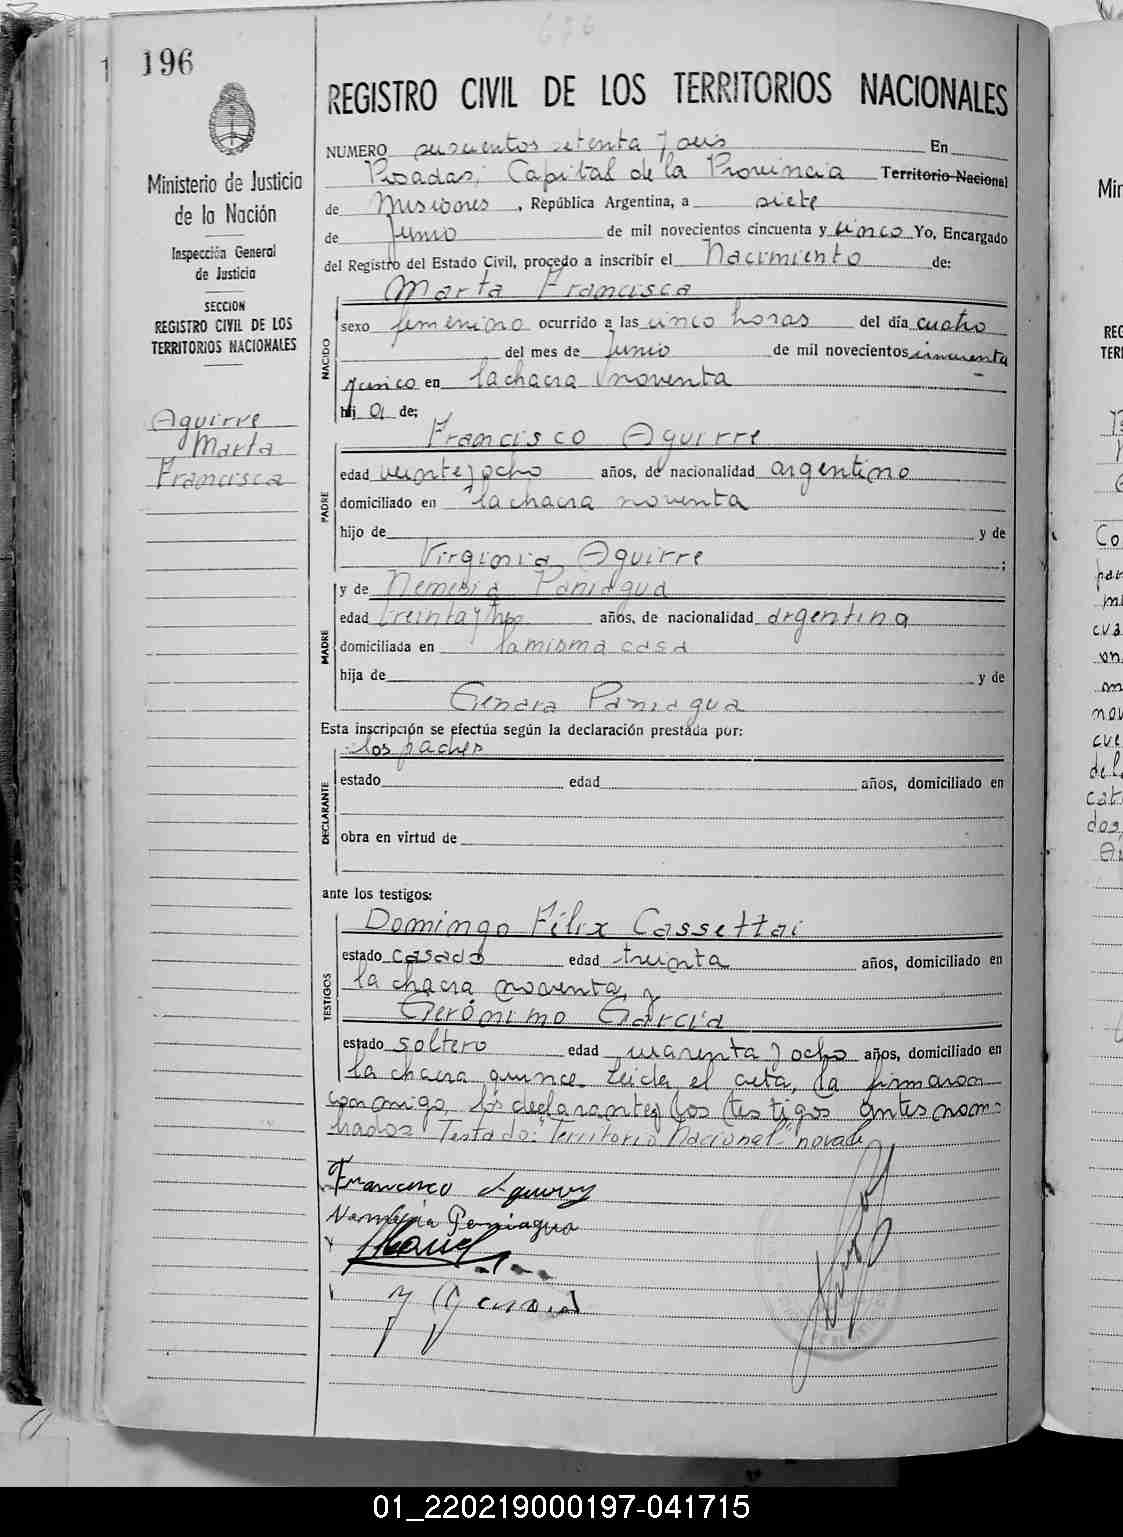 196
626
REGISTRO CIVIL DE LOS TERRITORIOS NACIONALES
Ministerio de Justicia
de la Nación
Inspección General
de Justicia
SECCION
REGISTRO CIVIL DE LOS
TERRITORIOS NACIONALES
Aguirre
Marta
Francisca
NUMERO seiscientos setenta y seis En
Posadas, Capital de la Provincia Territorio Nacional
de Misiones, República Argentina, a siete
de Junio de mil novecientos cincuenta y cinco Yo, Encargado
del Registro del Estado Civil, procedo a inscribir el Nacimiento de:
NACIDO
Marta Francisca
sexo femenino ocurrido a las cinco horas del día cuatro
del mes de Junio de mil novecientos cincuenta
y cinco en la chacra noventa
hij a de:
PADRE
Francisco Aguirre
edad veinte y ocho años, de nacionalidad argentino
domiciliado en la chacra noventa
hijo de y de
Virginia Aguirre;
MADRE
y de Nemesia Paniagua
edad treinta y tres años, de nacionalidad argentina
domiciliada en la misma casa
hija de y de
Genara Paniagua
Esta inscripción se efectúa según la declaración prestada por:
DECLARANTE
los padres
estado edad años, domiciliado en
obra en virtud de
ante los testigos:
TESTIGOS
Domingo Félix Cassettai
estado casado edad treinta años, domiciliado en
la chacra noventa, y
Gerónimo García
estado soltero edad cuarenta y ocho años, domiciliado en
la chacra quince. Leída el acta, la firmaron
conmigo, los declarantes y los testigos antes nom-
brados. Testado: "Territorio Nacional" no vale
Francisco Aguirre
Nemesia Paniagua
01_220219000197-041715